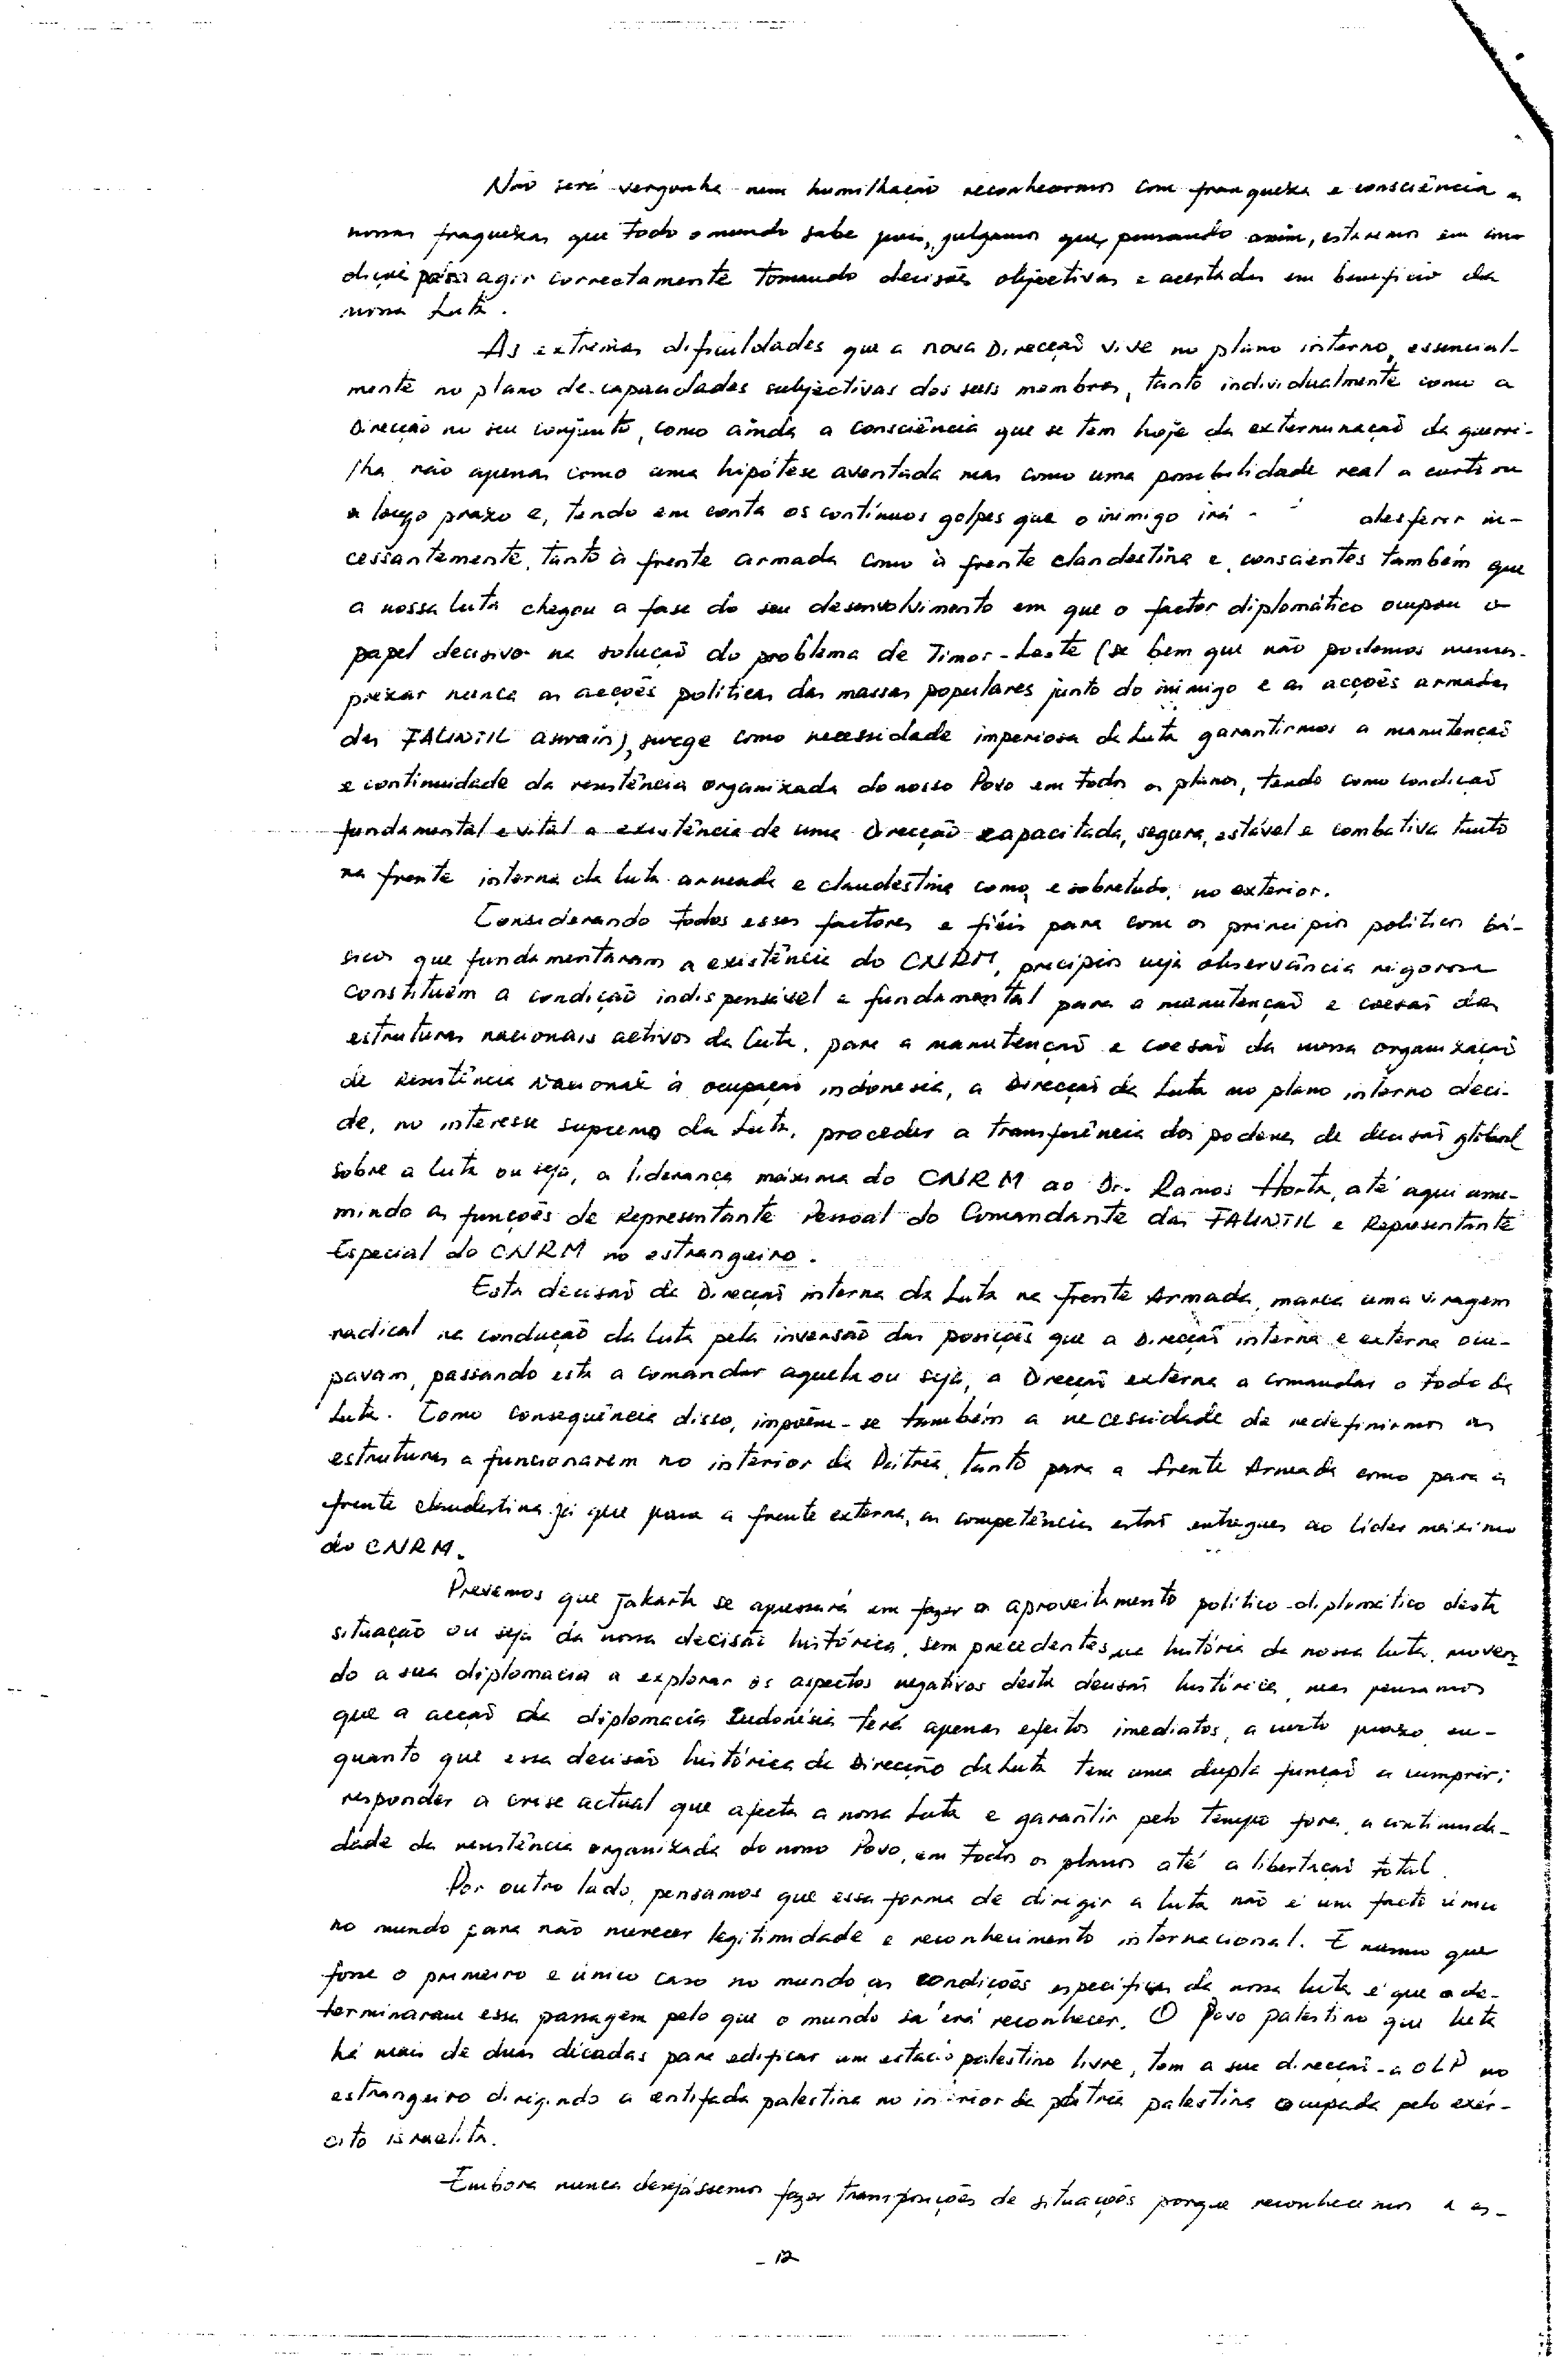 Não será vergonha nem humilhação reconhecermos com franqueza e consciência as
nossas fraquezas que todo o mundo sabe pois, julgamos que, pensando assim, estaremos em con-
dições para agir correctamente tomando decisões objectivas e acertadas em benefício da
nossa Luta.
As extremas dificuldades que a nova Direcção vive no plano interno, essencial-
mente no plano de capacidades subjectivas dos seus membros, tanto individualmente como a
Direcção no seu conjunto, como ainda a consciência que se tem hoje da exterminação da guerri-
lha não apenas como uma hipótese aventada mas como uma possibilidade real a curto ou
a longo prazo e, tendo em conta os contínuos golpes que o inimigo irá desferir in-
cessantemente, tanto à frente armada como à frente clandestina e, conscientes também que
a nossa luta chegou a fase do seu desenvolvimento em que o factor diplomático ocupou o
papel decisivo na solução do problema de Timor-Leste (se bem que não podemos menos-
prezar nunca as acções políticas das massas populares junto do inimigo e as acções armadas
das FALINTIL aswain), surge como necessidade imperiosa da Luta garantirmos a manutenção
e continuidade da resistência organizada do nosso Povo em todos os planos, tendo como condição
fundamental e vital a existência de uma Direcção capacitada, segura, estável e combativa tanto
na frente interna da luta armada e clandestina como, e sobretudo, no exterior.
Considerando todos esses factores e fiéis para com os princípios políticos bá-
sicos que fundamentaram a existência do CNRM, precípios cuja observância rigorosa
constituem a condição indispensável e fundamental para a manutenção e coesão das
estruturas nacionais activos da luta, para a manutenção e coesão da nossa organização
de Resistência Nacional à ocupação indonesia, a Direcção da Luta no plano interno deci-
de, no interesse supremo da Luta, proceder a transferência dos poderes de decisão global
sobre a luta ou seja, a liderança máxima do CNRM ao Dr. Ramos Horta, até aqui assu-
mindo as funções de Representante Pessoal do Comandante das FALINTIL e Representante
Especial do CNRM no estrangeiro.
Esta decisão da Direcção interna da Luta na Frente Armada, marca uma viragem
radical na condução da luta pela inversão das posições que a Direcção interna e externa ocu-
pavam, passando esta a comandar aquela ou seja, a Direcção externa a comandar o todo da
Luta. Como consequência disso, impõem-se também a necessidade de redefinirmos as
estruturas a funcionarem no interior da Pátria, tanto para a Frente Armada como para a
frente clandestina já que para a frente externa, as competências estão entregues ao líder máximo
do CNRM.
Prevemos que Jakarta se apressará em fazer o aproveitamento político-diplomático desta
situação ou seja da nossa decisão histórica, sem precedentes na história da nossa luta, moven-
do a sua diplomacia a explorar os aspectos negativos desta decisão histórica, mas pensamos
que a acção da diplomacia Indonésia terá apenas efeitos imediatos, a curto prazo, en-
quanto que essa decisão histórica da Direcção da Luta tem uma dupla função a cumprir:
responder a crise actual que afecta a nossa Luta e garantir pelo tempo fora, a continui-
dade da resistência organizada do nosso Povo, em todos os planos até a libertação total.
Por outro lado, pensamos que essa forma de dirigir a luta não é um facto único
no mundo para não merecer legitimidade e reconhecimento internacional. E mesmo que
fosse o primeiro e único caso no mundo as condições específicas da nossa luta é que a de-
terminaram essa passagem pelo que o mundo reconhecer. O Povo palestino que luta
há mais de duas décadas para edificar um estado palestino livre, tem a sua direcção - a OLP no
estrangeiro dirigindo a entifada palestina no interior da pátria palestina ocupada pelo exér-
cito israelita.
Embora nunca desejássemos fazer transposições de situações porque reconhecemos a es-
- 12